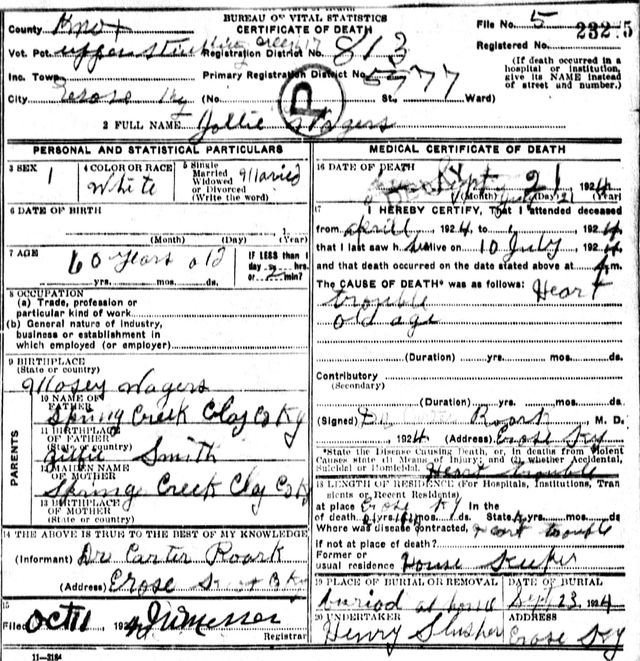 BUREAU OF VITAL STATISTICS
CERTIFICATE OF DEATH
County Knox
File No. 5 23215
Vot. Pct. upper stinking creek Registration District No. 813
Registered No.
Inc. Town Primary Registration District No. 5777
(If death occurred in a hospital or institution, give its NAME instead of street and number.)
City Erose Ky (No. St., Ward)
P
2 FULL NAME Jollie Wagers
PERSONAL AND STATISTICAL PARTICULARS
3 SEX 1
4 COLOR OR RACE White
5 Single Married Widowed or Divorced (Write the word) Married
6 DATE OF BIRTH
(Month) (Day) (Year)
7 AGE 60 years old
yrs. mos. ds.
IF LESS than 1 day hrs. or min?
8 OCCUPATION
(a) Trade, profession or
particular kind of work
(b) General nature of industry,
business or establishment in
which employed (or employer)
9 BIRTHPLACE
(State or country)
Mosey Wagers
10 NAME OF FATHER
Spring Creek Clay Co Ky
11 BIRTHPLACE OF FATHER
(State or country)
Smith
12 MAIDEN NAME OF MOTHER
Spring Creek Clay Co Ky
13 BIRTHPLACE OF MOTHER
(State or country)
PARENTS
14 THE ABOVE IS TRUE TO THE BEST OF MY KNOWLEDGE
(Informant) Dr Carter Roark
(Address) Erose Ky
15
Filed Oct 1, 1924 J Messer
Registrar
11-3184
MEDICAL CERTIFICATE OF DEATH
16 DATE OF DEATH
Sept 21 1924
(Month) (Day) (Year)
17 I HEREBY CERTIFY, That I attended deceased
from april 1924 to , 1924
that I last saw h alive on 10 July, 1924
and that death occurred on the date stated above at m.
The CAUSE OF DEATH* was as follows: Heart
trouble
old age
(Duration) yrs. mos. ds.
Contributory
(Secondary)
(Duration) yrs. mos. ds.
(Signed) Dr Roark M. D.
, 1924 (Address) Erose Ky
*State the Disease Causing Death, or, in deaths from Violent
Causes state (1) Means of Injury; and (2) whether Accidental,
Suicidal or Homicidal. Heart trouble
18 LENGTH OF RESIDENCE (For Hospitals, Institutions, Transients or Recent Residents)
at place Erose Ky In the
of death yrs. mos. ds. State yrs. mos. ds.
Where was disease contracted, Heart trouble
if not at place of death?
Former or
usual residence House Keeper
19 PLACE OF BURIAL OR REMOVAL
buried at home
DATE OF BURIAL
Sept 23, 1924
20 UNDERTAKER
Henry Slusher
ADDRESS
Erose Ky